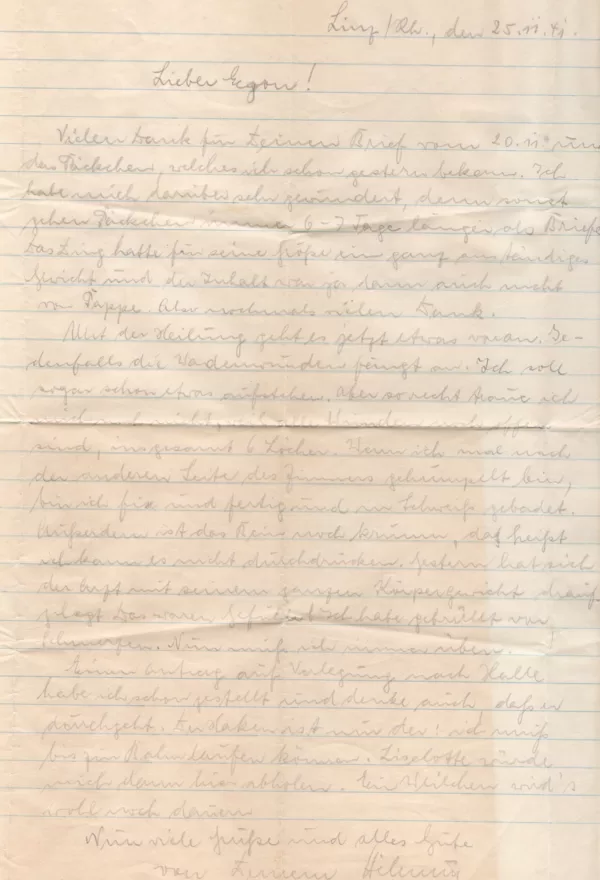 Linz/Rh., den 25.11.41.
Lieber Egon!
Vielen Dank für Deinen Brief vom 20.11. und
das Päckchen, welches ich schon gestern bekam. Ich
habe mich darüber sehr gewundert, denn sonst
gehen Päckchen immer 6-7 Tage länger als Briefe
Das Ding hatte für seine Größe ein ganz anständiges
Gewicht und der Inhalt war ja dann auch nicht
von Pappe. Also nochmals vielen Dank.
Mit der Heilung geht es jetzt etwas voran. Je-
denfalls die Wadenwunden fängt an. Ich soll
sogar schon etwas aufstehen. Aber so recht traue ich
mich noch nicht, weil alle Wunden noch offen
sind, insgesamt 6 Löcher. Wenn ich mal nach
der anderen Seite des Zimmers gehumpelt bin,
bin ich fix und fertig und in Schweiß gebadet.
Außerdem ist das Bein noch krumm, daß heißt
ich kann es nicht durchdrücken. Gestern hat sich
der Arzt mit seinem ganzen Körpergewicht drauf
gelegt. Das waren Gefühle! Ich habe gebrüllt vor
Schmerzen. Nun muß ich immer üben.
Einen Antrag auf Verlegung nach Halle
habe ich schon gestellt und denke auch daß er
durchgeht. Ein Haken ist nur der: ich muß
bis zur Bahn laufen können. Liselotte würde
mich dann hier abholen. Ein Weilchen wird's
woll noch dauern
Nun viele Grüße und alles Gute
von Deinem